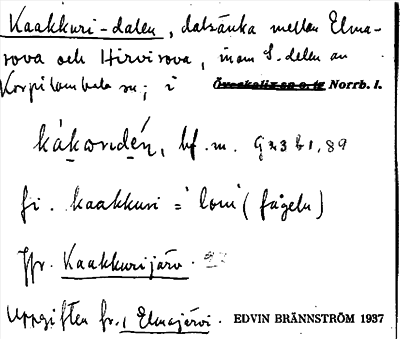 Kaakkuri-dalen, dalsänka mellan Elma-
rova och Hirvirova, inom S.-delen av
Korpilombolo sn; i Överkalix sn o. tg Norrb. l.
kàkɷrιdén, bf. m. G 23 b 1, 89
fi. kaakkuri = 'lom' (fågeln)
Jfr. Kaakkurijärv.
Uppgiften fr. Elmajärvi. EDVIN BRÄNNSTRÖM 1937